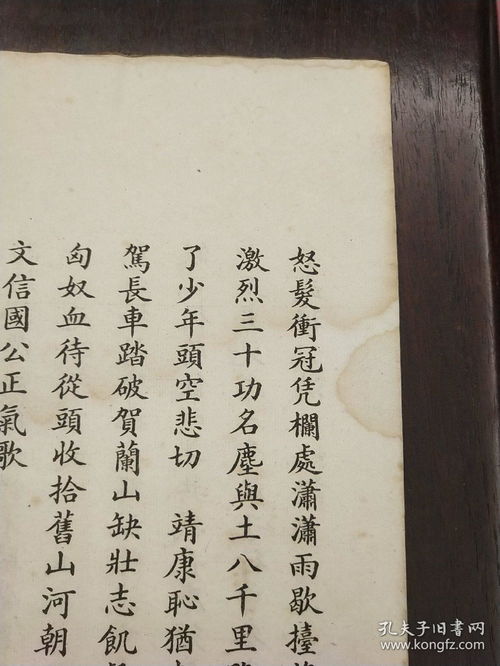 怒髮衝冠凭欄處瀟瀟雨歇擡
激烈三十功名塵與土八千里
了少年頭空悲切 靖康恥猶
駕長車踏破賀蘭山缺壯志飢
匈奴血待從頭收拾舊山河朝
文信國公正氣歌
孔夫子旧书网
www.kongfz.com